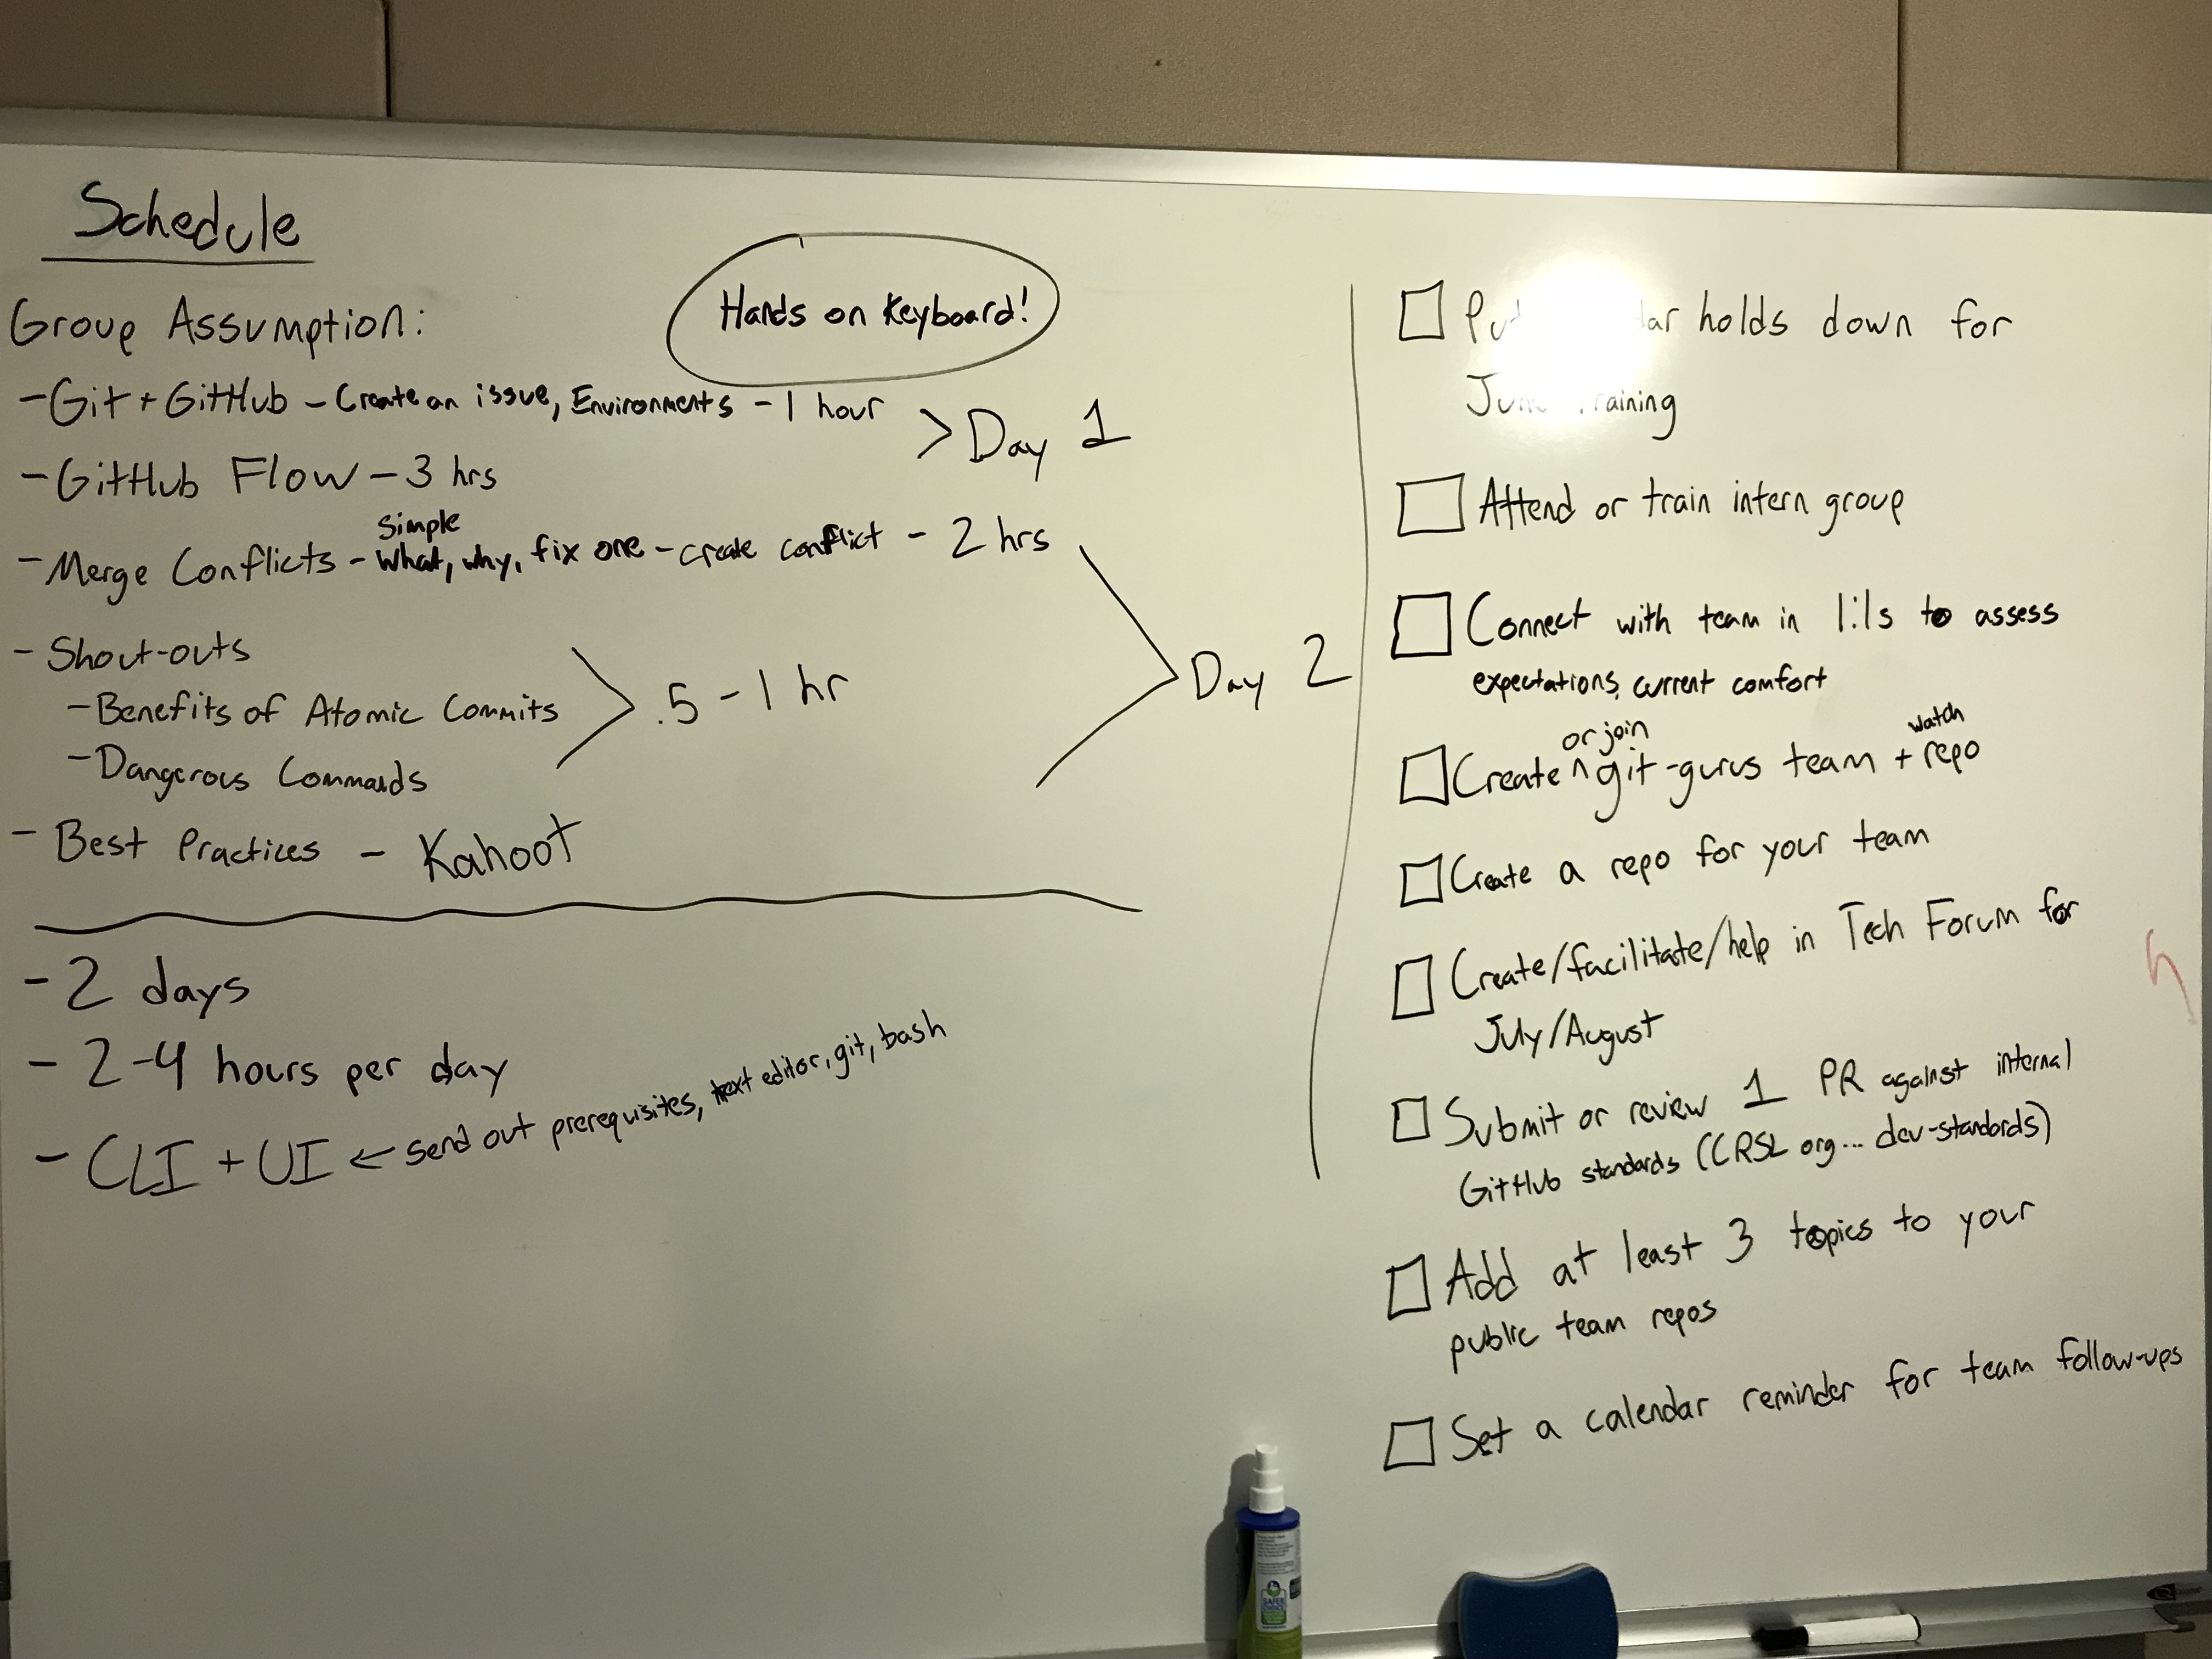 Schedule
Hands on Keyboard!
Group Assumption:
- Git + GitHub - Create an issue, Environments - 1 hour
> Day 1
- GitHub Flow - 3 hrs
simple
- Merge Conflicts - what, why, fix one - create conflict - 2 hrs
- Shout-outs
- Benefits of Atomic Commits
.5 - 1 hr
Day 2
- Dangerous Commands
- Best Practices - Kahoot
- 2 days
- 2-4 hours per day
- CLI + UI ← send out prerequisites, text editor, git, bash
holds down for
Training
Attend or train intern group
Connect with team in 1:1s to assess
expectations, current comfort
or join
watch
Create ^ git-gurus team + repo
Create a repo for your team
Create/facilitate/help in Tech Forum for
July/August
Submit or review 1 PR against internal
GitHub standards (CRSL org... dev-standards)
Add at least 3 topics to your
public team repos
Set a calendar reminder for team follow-ups